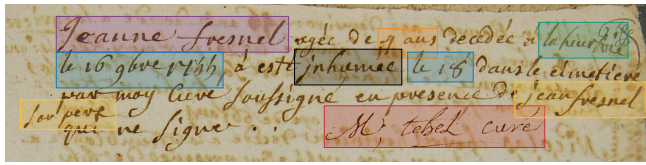 Jeanne fresnel agée de 4 ans decedée a
le 16 9bre 1744 à esté jnhumée le 18 dans le cimetiere
par moy Curé soussigné en presence de jean fresnel
son pere qui ne signe .
M, tehel curé